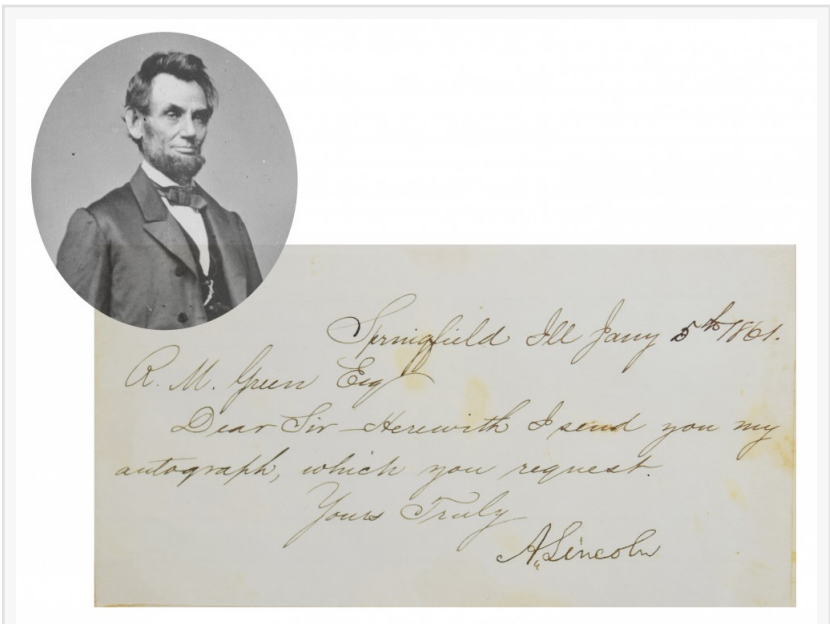 Springfield Ill Jany 5th 1861.
R. M. Green Esq
Dear Sir Herewith I send you my
autograph, which you request.
Yours Truly
A. Lincoln